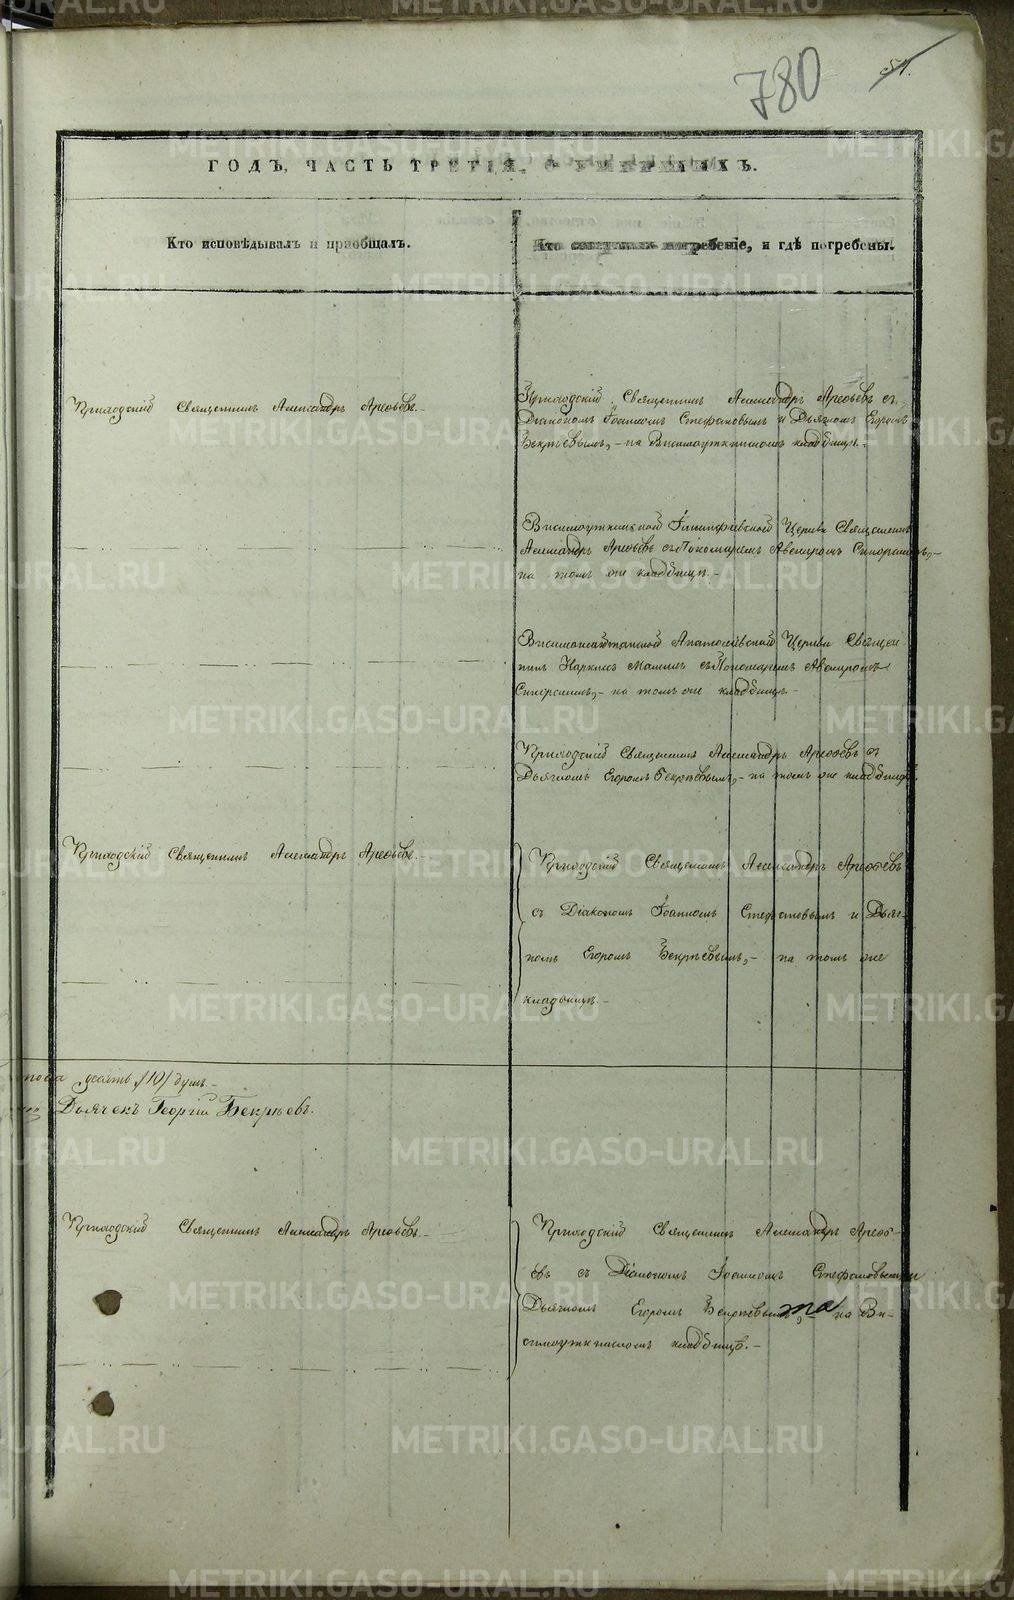 780
51.
ГОДЪ, ЧАСТЬ ТРЕТІЯ, О УМЕРШИХЪ.
Кто исповѣдывалъ и пріобщалъ.
Кто совершалъ погребеніе, и гдѣ погребены.
Приходскій Священникъ Александръ Арефьевъ.-
Приходскій Священникъ Александръ Арефьевъ съ
Діакономъ Іоанномъ Стефановымъ и Дьячкомъ Егоромъ
Бекрѣевымъ,- на Висимоуткинскомъ кладбищѣ.-
Висимоуткинской Церкви Священникъ
Александръ Арефьевъ съ Пономаремъ
на томъ же кладбищѣ.-
Висимошайтанской Анатоліевской Церкви Священ
никъ Наркиссъ Маминъ съ Пономаремъ
на томъ же кладбищѣ-
Приходскій Священникъ Александръ Арефьевъ съ
Дьячкомъ Егоромъ Бекрѣевымъ,- на томъ же кладбищѣ.
Приходскій Священникъ Александръ Арефьевъ.-
Приходскій Священникъ Александръ Арефьевъ
съ Діакономъ Іоанномъ Стефановымъ и Дьяч-
комъ Егоромъ Бекрѣевымъ,- на томъ же
кладбищѣ.-
пола десять /10/ душъ.-
Дьячекъ Георгій Бекрѣевъ.
Приходскій Священникъ Александръ Арефьевъ.-
Приходскій Священникъ Александръ Арефь-
евъ съ Діакономъ Іоанномъ Стефановымъ и
Дьячкомъ Егоромъ Бекрѣевымъ, на Ви-
симоуткинскомъ кладбищѣ.-
METRIKI.GASO-URAL.RU